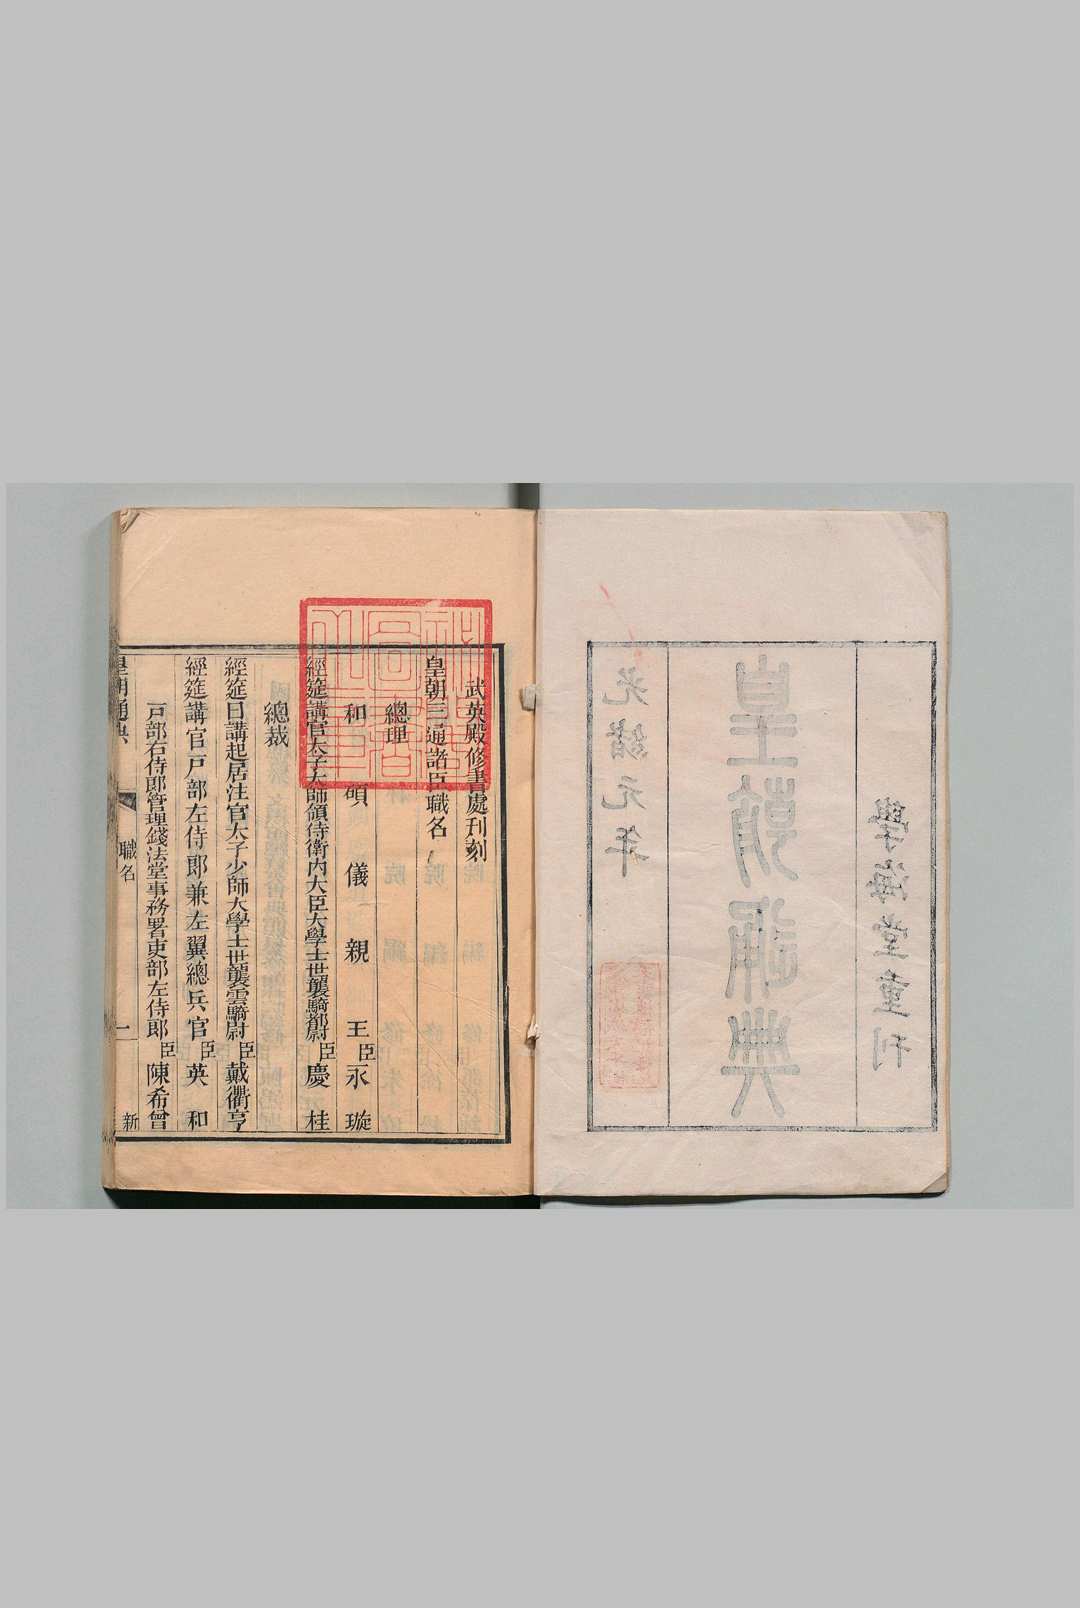 光緒元年
皇朝通典
學海堂重刊
武英殿修書處刊刻
皇朝三通諸臣職名
總理
和碩儀親王臣永璇
經筵講官太子太師領侍衛內大臣大學士世襲騎都尉臣慶桂
總裁
經筵日講起居注官太子少師大學士世襲雲騎尉臣戴衢亨
經筵講官戶部左侍郎兼左翼總兵官臣英和
戶部右侍郎管理錢法堂事務署吏部左侍郎臣陳希曾
皇朝通典
職名
一
新